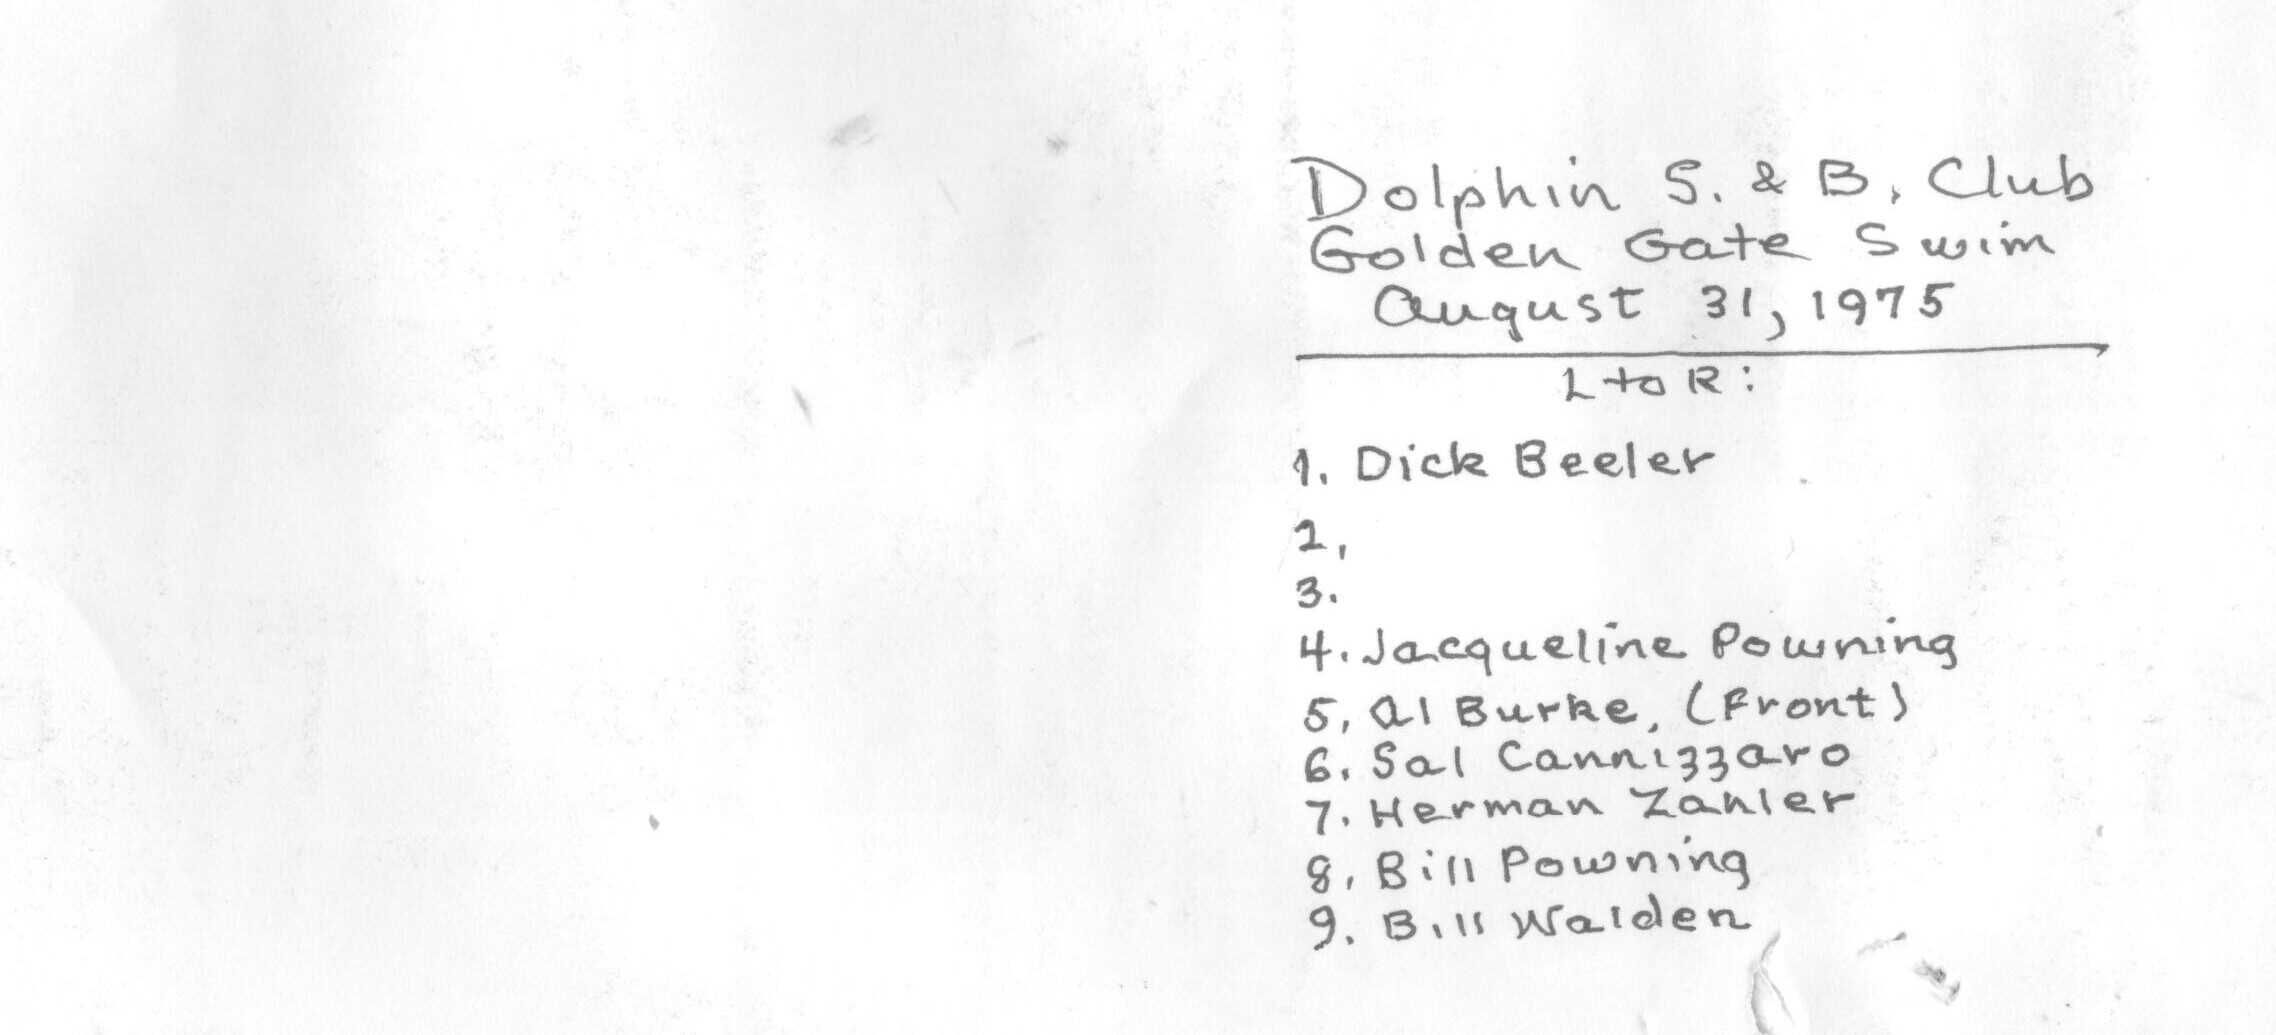 Dolphin S. & B. Club
Golden Gate Swim
August 31, 1975
L to R:
1. Dick Beeler
2.
3.
4. Jacqueline Powning
5. Al Burke, (Front)
6. Sal Cannizzaro
7. Herman Zahler
8. Bill Powning
9. Bill Walden